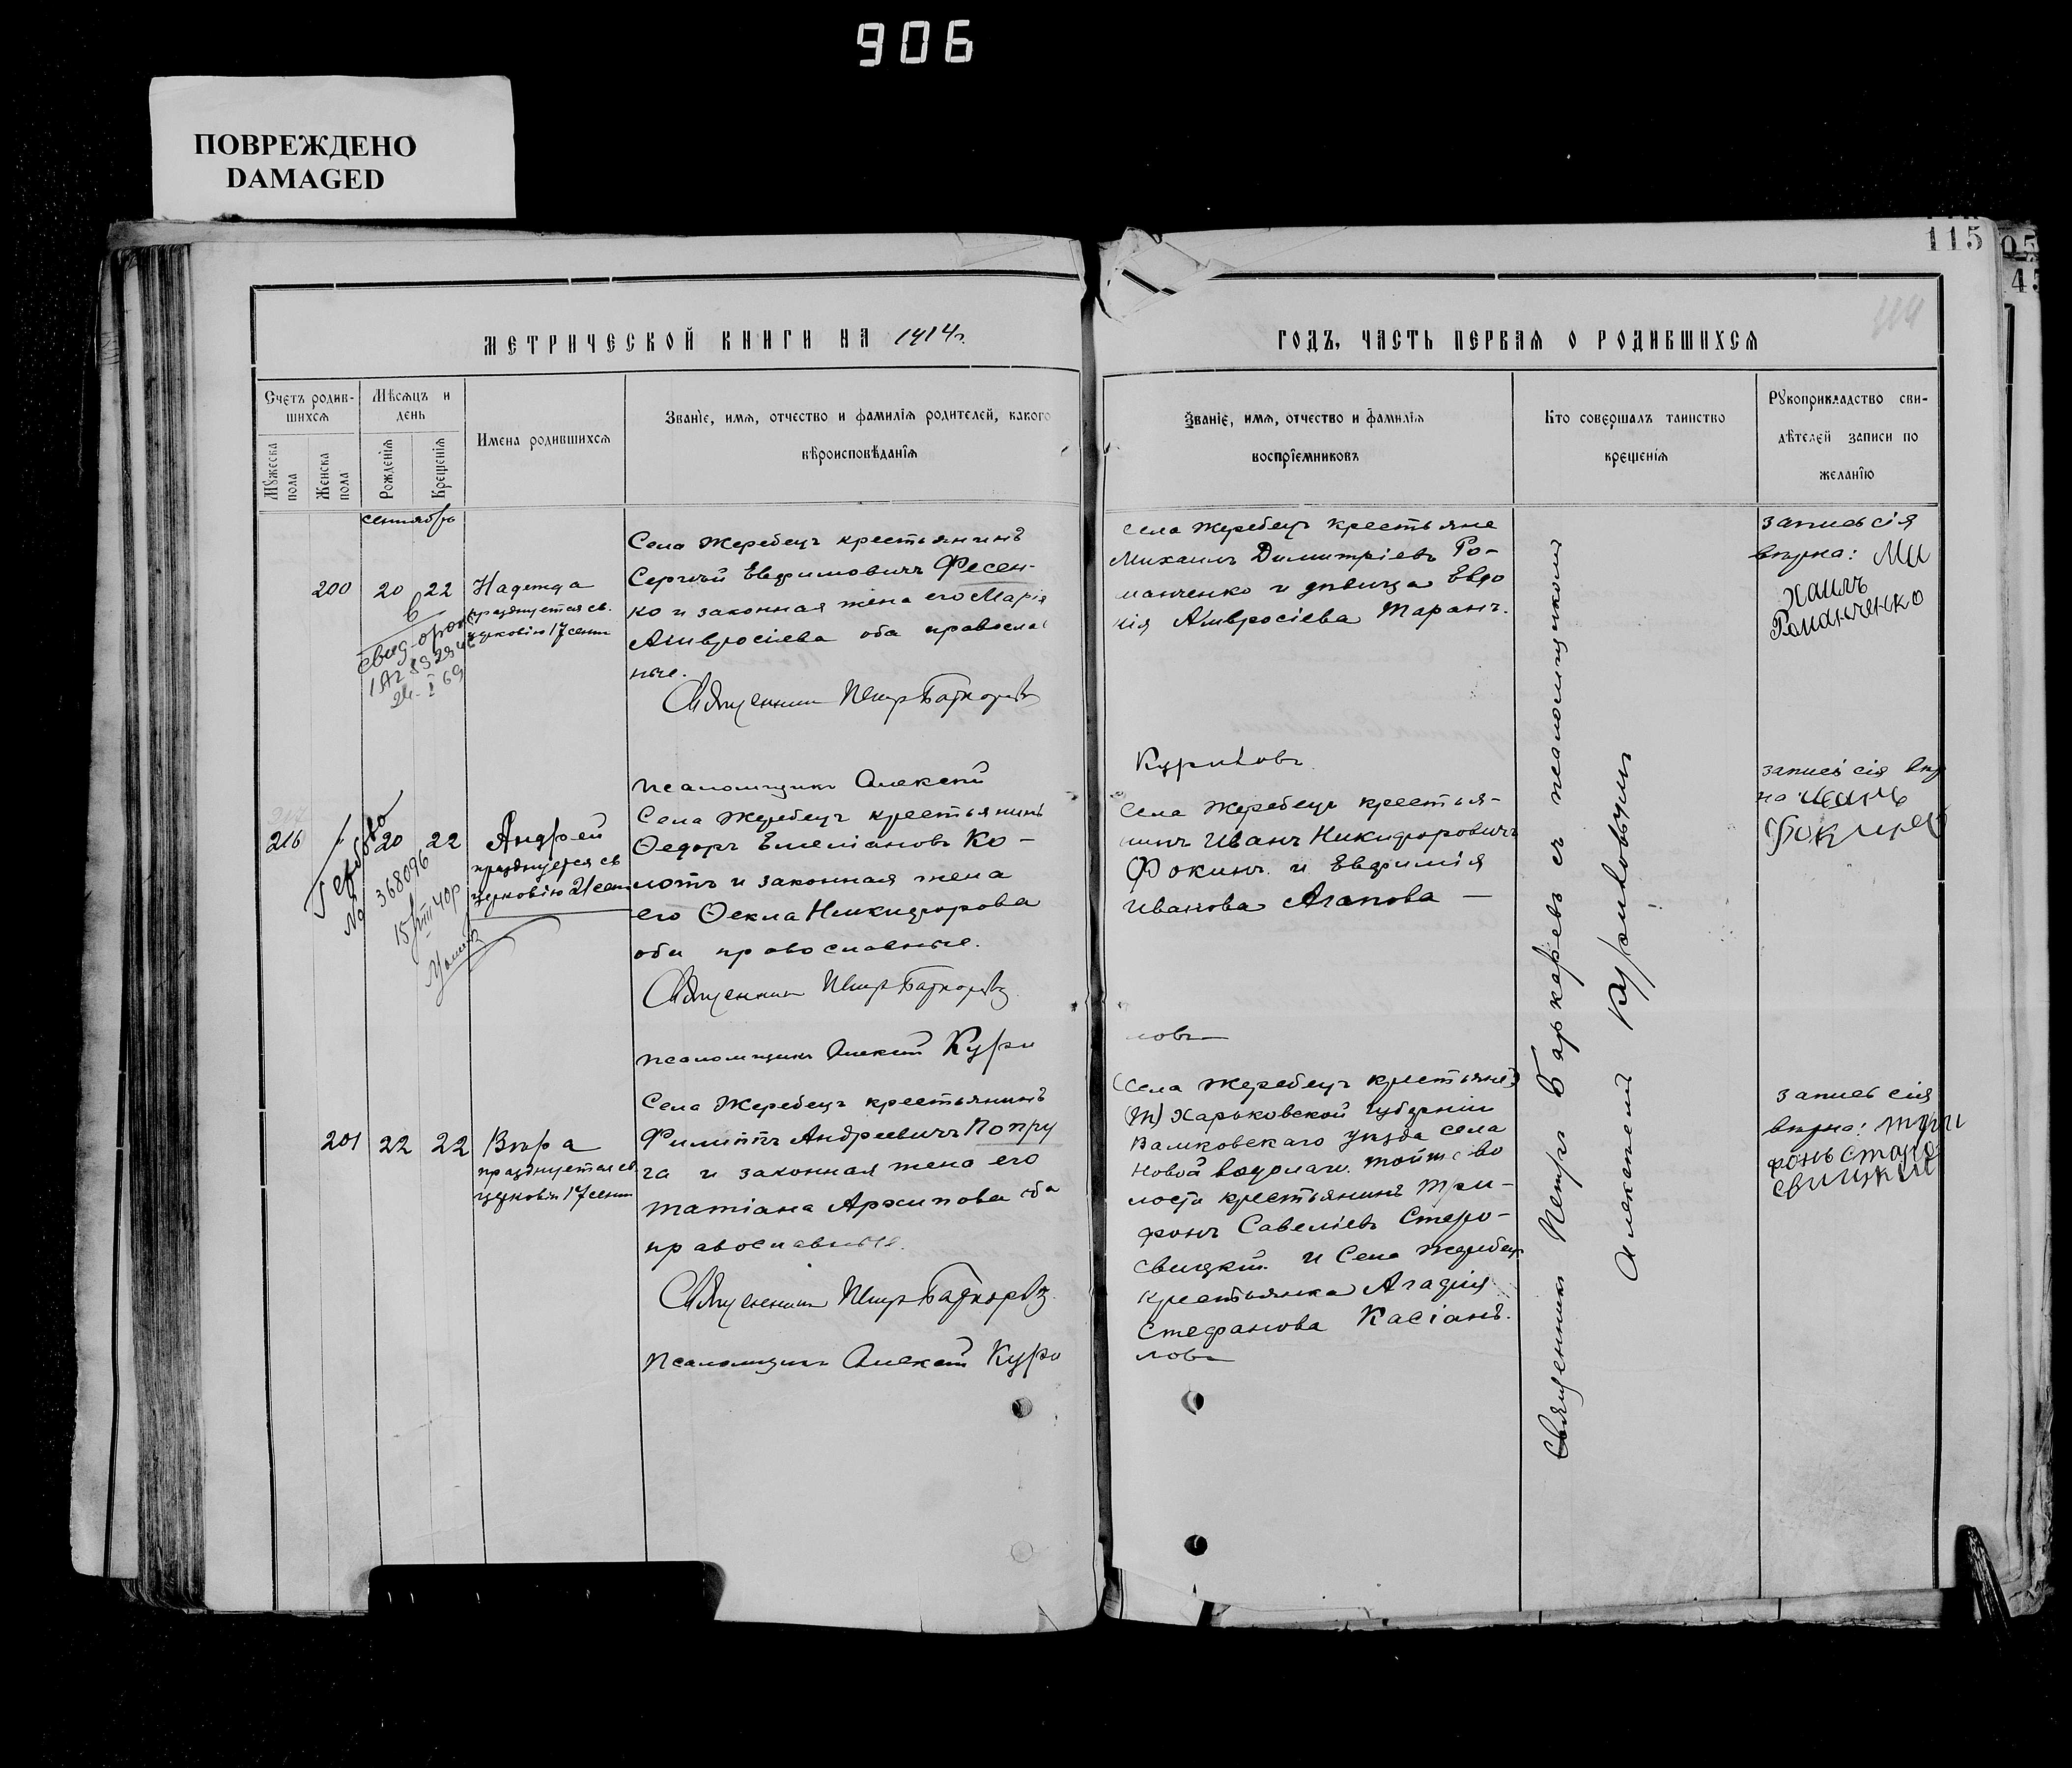 906
ПОВРЕЖДЕНО
DAMAGED
115
МЕТРИЧЕСКОЙ КНИГИ НА 1914г.
ГОДЪ, ЧАСТЬ ПЕРВАЯ О РОДИВШИХСЯ
Счетъ родив-
шихся
Мѣсяцъ и
день
Мужеска
пола
Женска
пола
Рожденія
Крещенія
Имена родившихся
Званіе, имя, отчество и фамилія родителей, какого
вѣроисповѣданія
Званіе, имя, отчество и фамилія
воспріемниковъ
Кто совершалъ таинство
крещенія
Рукоприкладство сви-
дѣтелей записи по
желанію
сентябрь
200 20 22 Надежда
празднуется св.
церковію 17 сент
Села Жеребецъ крестьянинъ
Сергѣй Евфимовичъ Фесен-
ко и законная жена его Марія
Амвросіева оба православ
ные.
Священникъ Петръ
Псаломщикъ Алексѣй
Села Жеребецъ крестьяне
Михаилъ Димитріевъ Ро-
манченко и дѣвица Евдо
кія Амвросіева Таранъ.
Куриловъ
запись сія
вѣрна: Ми
хаилъ
Романченко
216 20 22 Андрей
празднуется св
церковію 21 сент
№ 368096
Села Жеребецъ крестьянинъ
Ѳедоръ Емеліановъ Ко-
лотъ и законная жена
его Ѳекла Никифорова
оба православные.
Священникъ Петръ
Псаломщикъ Алексѣй Кури
Села Жеребецъ крестья-
нинъ Иванъ Никифоровичъ
Фокинъ и Евфимія
Иванова Агапова —
ловъ
запись сія вѣр
на
201 22 22 Вѣра
празднуется св
церковію 17 сент
Села Жеребецъ крестьянинъ
Филиппъ Андреевичъ Попру
га и законная жена его
Татіана Архипова оба
православные.
Священникъ Петръ
Псаломщикъ Алексѣй Кури
Села Жеребецъ крестьяне
Харьковской губерніи
Валковскаго уѣзда села
Новой Водолаги тойже во
лости крестьянинъ Три-
фонъ Савеліевъ Старо-
свицкій и Села Жеребецъ
крестьянка Агафія
Стефанова Касіанъ.
ловъ
запись сія
вѣрна: Три
фонъ Старо
свицкий
Священникъ Петръ съ псаломщикомъ
Алексѣемъ Куриловымъ